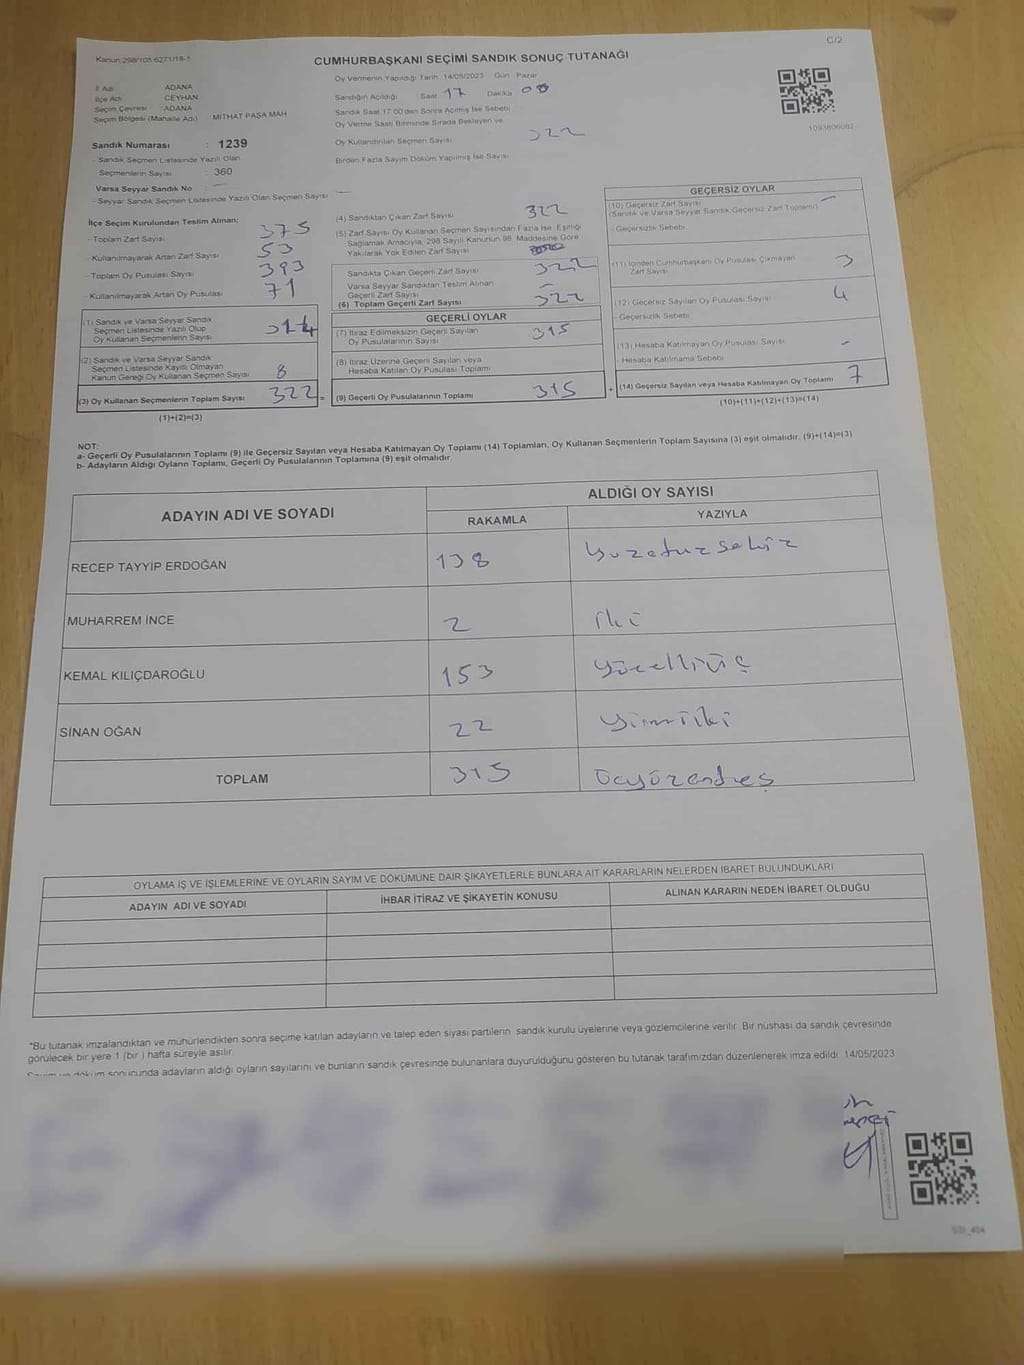 C/2
Kanun:298/105.6271/18-1
CUMHURBAŞKANI SEÇİMİ SANDIK SONUÇ TUTANAĞI
İl Adı : ADANA
İlçe Adı : CEYHAN
Seçim Çevresi : ADANA
Seçim Bölgesi (Mahalle Adı) : MİTHAT PAŞA MAH
Oy Vermenin Yapıldığı Tarih 14/05/2023 Gün : Pazar
Sandığın Açıldığı Saat 17 Dakika 00
Sandık Saat 17:00'den Sonra Açılmış İse Sebebi
Oy Verme Saati Bitiminde Sırada Bekleyen ve
Oy Kullandırılan Seçmen Sayısı 322
Birden Fazla Sayım Döküm Yapılmış İse Sayısı
1093806082
Sandık Numarası : 1239
- Sandık Seçmen Listesinde Yazılı Olan
Seçmenlerin Sayısı : 360
Varsa Seyyar Sandık No : —
- Seyyar Sandık Seçmen Listesinde Yazılı Olan Seçmen Sayısı : —
İlçe Seçim Kurulundan Teslim Alınan;
- Toplam Zarf Sayısı 375
- Kullanılmayarak Artan Zarf Sayısı 53
- Toplam Oy Pusulası Sayısı 393
- Kullanılmayarak Artan Oy Pusulası 71
(1) Sandık ve Varsa Seyyar Sandık
Seçmen Listesinde Yazılı Olup
Oy Kullanan Seçmenlerin Sayısı 314
(2) Sandık ve Varsa Seyyar Sandık
Seçmen Listesinde Kayıtlı Olmayan
Kanun Gereği Oy Kullanan Seçmen Sayısı 8
(3) Oy Kullanan Seçmenlerin Toplam Sayısı 322 =
(1)+(2)=(3)
(4) Sandıktan Çıkan Zarf Sayısı 322
(5) Zarf Sayısı Oy Kullanan Seçmen Sayısından Fazla İse, Eşitliği
Sağlamak Amacıyla, 298 Sayılı Kanunun 98. Maddesine Göre
Yakılarak Yok Edilen Zarf Sayısı
Sandıkta Çıkan Geçerli Zarf Sayısı 322
Varsa Seyyar Sandıktan Teslim Alınan
Geçerli Zarf Sayısı —
(6) Toplam Geçerli Zarf Sayısı 322
GEÇERLİ OYLAR
(7) İtiraz Edilmeksizin Geçerli Sayılan
Oy Pusulalarının Sayısı 315
(8) İtiraz Üzerine Geçerli Sayılan veya
Hesaba Katılan Oy Pusulası Toplamı
(9) Geçerli Oy Pusulalarının Toplamı 315 +
GEÇERSİZ OYLAR
(10) Geçersiz Zarf Sayısı —
(Sandık ve Varsa Seyyar Sandık Geçersiz Zarf Toplamı)
- Geçersizlik Sebebi
(11) İçinden Cumhurbaşkanı Oy Pusulası Çıkmayan
Zarf Sayısı 3
(12) Geçersiz Sayılan Oy Pusulası Sayısı 4
- Geçersizlik Sebebi
(13) Hesaba Katılmayan Oy Pusulası Sayısı -
- Hesaba Katılmama Sebebi
(14) Geçersiz Sayılan veya Hesaba Katılmayan Oy Toplamı 7
(10)+(11)+(12)+(13)=(14)
NOT:
a- Geçerli Oy Pusulalarının Toplamı (9) ile Geçersiz Sayılan veya Hesaba Katılmayan Oy Toplamı (14) Toplamları, Oy Kullanan Seçmenlerin Toplam Sayısına (3) eşit olmalıdır. (9)+(14)=(3)
b- Adayların Aldığı Oyların Toplamı, Geçerli Oy Pusulalarının Toplamına (9) eşit olmalıdır.
ADAYIN ADI VE SOYADI ALDIĞI OY SAYISI
RAKAMLA YAZIYLA
RECEP TAYYİP ERDOĞAN 138 Yuzotuzsekiz
MUHARREM İNCE 2 iki
KEMAL KILIÇDAROĞLU 153 Yüzelliüç
SİNAN OĞAN 22 Yirmiiki
TOPLAM 315 Üçyüzonbeş
OYLAMA İŞ VE İŞLEMLERİNE VE OYLARIN SAYIM VE DÖKÜMÜNE DAİR ŞİKAYETLERLE BUNLARA AİT KARARLARIN NELERDEN İBARET BULUNDUKLARI
ADAYIN ADI VE SOYADI İHBAR İTİRAZ VE ŞİKAYETİN KONUSU ALINAN KARARIN NEDEN İBARET OLDUĞU
"Bu tutanak imzalandıktan ve mühürlendikten sonra seçime katılan adayların ve talep eden siyasi partilerin sandık kurulu üyelerine veya gözlemcilerine verilir. Bir nüshası da sandık çevresinde
görülecek bir yere 1 (bir) hafta süreyle asılır.
Sayım ve döküm sonucunda adayların aldığı oyların sayılarını ve bunların sandık çevresinde bulunanlara duyurulduğunu gösteren bu tutanak tarafımızdan düzenlenerek imza edildi. 14/05/2023